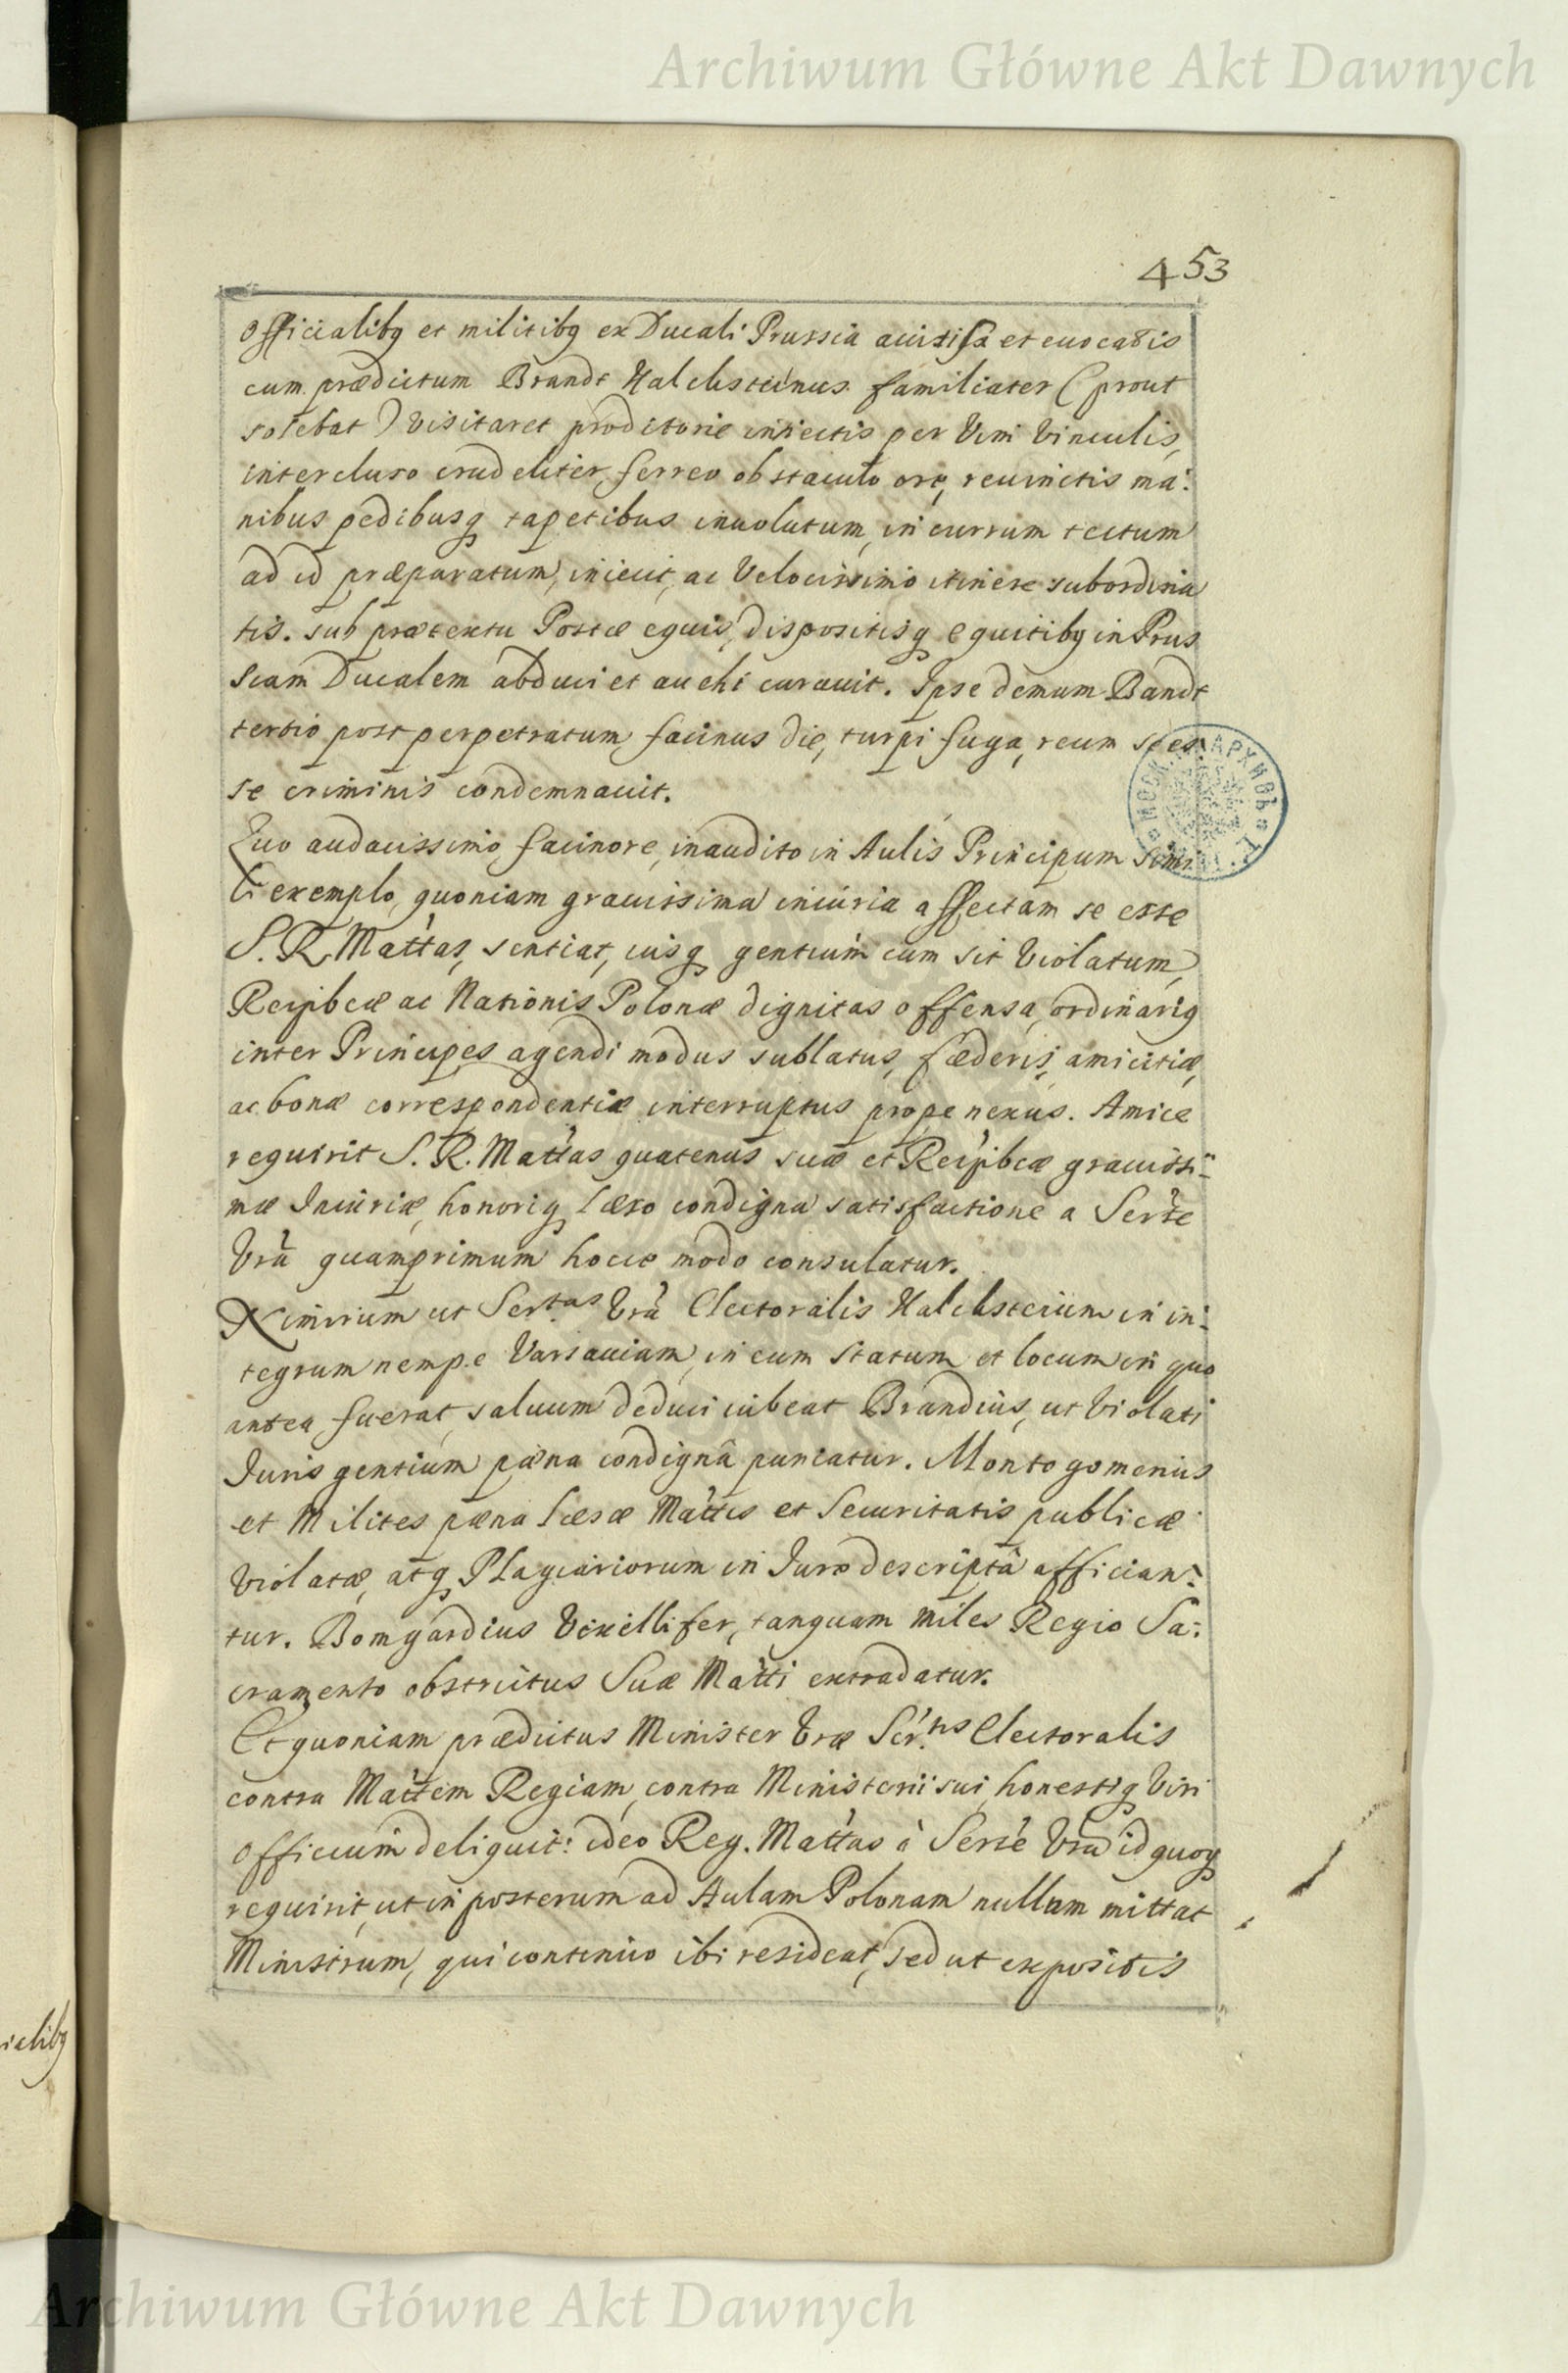 Archiwum Główne Akt Dawnych
453
Officialibq et militibq ex Ducali Prussia et euocatis
cum prædictum Brandt Halchsteinus familiater (prout
solebat) visitaret proditorie iniectis per Vim Vinculis,
intercluso crudeliter, ferreo obstaculo ore, reuinctis ma:
nibus pedibusq tapetibus inuolutum, in currum tectum
ad id præparatum, iniecit, ac Velocissimo itinere subordina
tis. sub prætextu Postæ equis, dispositisq equitibq in Prus
siam Ducalem abduci et auehi curauit. Ipse demum Bandt
tertio post perpetratum facinus die, turpi fuga, reum se es:
se criminis condemnauit.
Quo audacissimo facinore, inaudito in Aulis Principum simi
li exemplo, quoniam grauissima iniuria affectam se esse
S. R. Mattas, sentiat, iusq gentium cum sit Violatum,
Reipbcæ ac Nationis Polonæ dignitas offensa, ordinariq
inter Principes agendi modus sublatus, fæderis, amicitiæ,
ac bonæ correspondentiæ interruptus prope nexus. Amice
requirit S. R. Mattas quatenus suæ et Reipbcæ grauissi:
mæ Iniuriæ, honoriq læso condigna satisfactione a Serte
Vrâ quamprimum hocce modo consulatur.
Nimirum ut Sertas Vrâ Electoralis Halchsteium in in:
tegrum nempe Varsauiam, in eum statum et locum in quo
antea fuerat, saluum deduci iubeat Brandius, ut Violati
Iuris gentium pæna condignâ puniatur. Montogomenius
et Milites pæna læsæ Mattis et Securitatis publicæ
Violatæ, atq Plagiariorum in Iure descriptâ affician:
tur. Bomgardius Vexillifer, tanquam miles Regio Sa:
cramento obstrictus Suæ Matti extradatur.
Et quoniam prædictus Minister Vræ Ser.tis Electoralis
contra Mattem Regiam, contra Ministerii sui, honestiq Viri
officium deliquit: ideo Reg. Mattas à Serte Vrâ id quoq
requirit, ut in posterum ad Aulam Polonam nullum mittat
Ministrum, qui continuo ibi resideat, sed ut expositis
Archiwum Główne Akt Dawnych